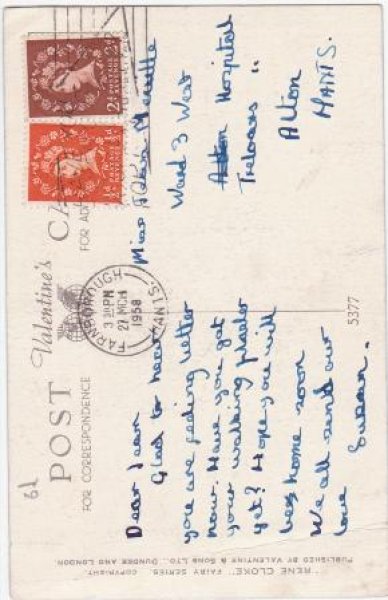 POST CA
Valentine's
FOR CORRESPONDENCE
FOR AD
6d
POSTAGE REVENUE
2D
POSTAGE REVENUE
½D
FARNBOROUGH
3 30 PM
27 MCH
1958
HANTS.
Dear Jean
Glad to hear
you are feeling better
now. Have you got
your walking plaster
yet? Hope you will
be home soon
We all send our
love Susan.
Miss
Ward 3 West
Hospital
Treloars "
Alton
HANTS.
5377
"RENE CLOKE" FAIRY SERIES. COPYRIGHT.
PUBLISHED BY VALENTINE & SONS LTD., DUNDEE AND LONDON